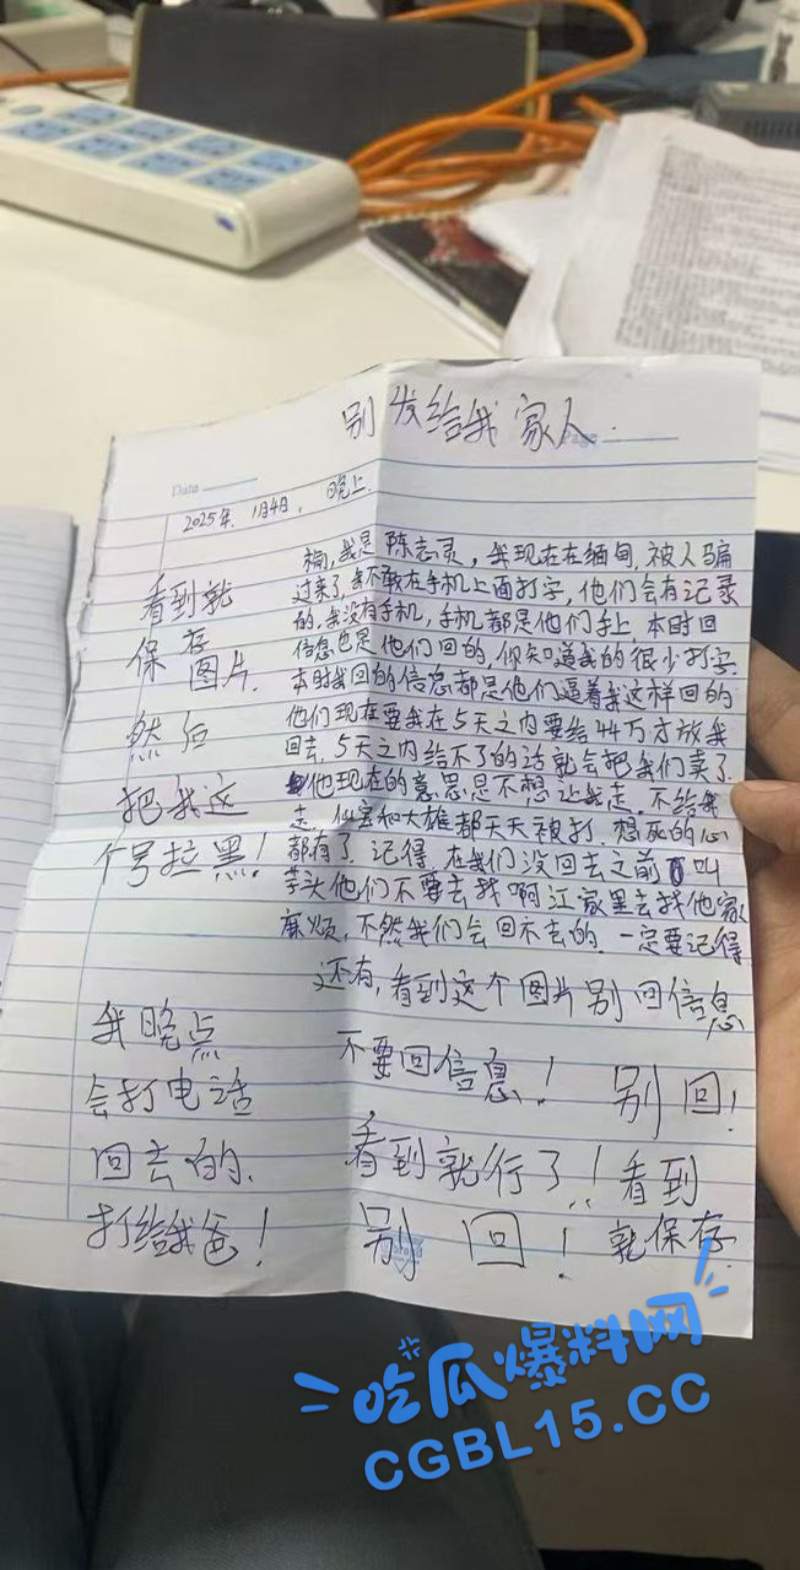 别发给我家人.
Page
Date
2025年. 1月4日. 晚上.
我是陈志灵, 我现在在缅甸, 被人骗
过来了, 我不敢在手机上面打字, 他们会有记录
的, 我没有手机, 手机都是他们手上, 本时回
信息也是他们回的, 你知道我的很少打字.
本时我回的信息都是他们逼着我这样回的
他们现在要我在5天之内要给44万才放我
回去, 5天之内给不了的话就会把我们卖了.
他现在的意思是不想让我走, 不给我
走, 和大雄都天天被打, 想死的心
都有了, 记得, 在我们没回去之前 叫
芋头他们不要去找啊江家里去找他家
麻烦, 不然我们会回不去的, 一定要记得
还有, 看到这个图片别回信息
不要回信息! 别回!
看到就行了! 看到
别回! 就保存
看到就
保存
图片.
然后
把我这
个号拉黑!
我晚点
会打电话
回去的.
打给我爸!
吃瓜爆料网
CGBL15.CC